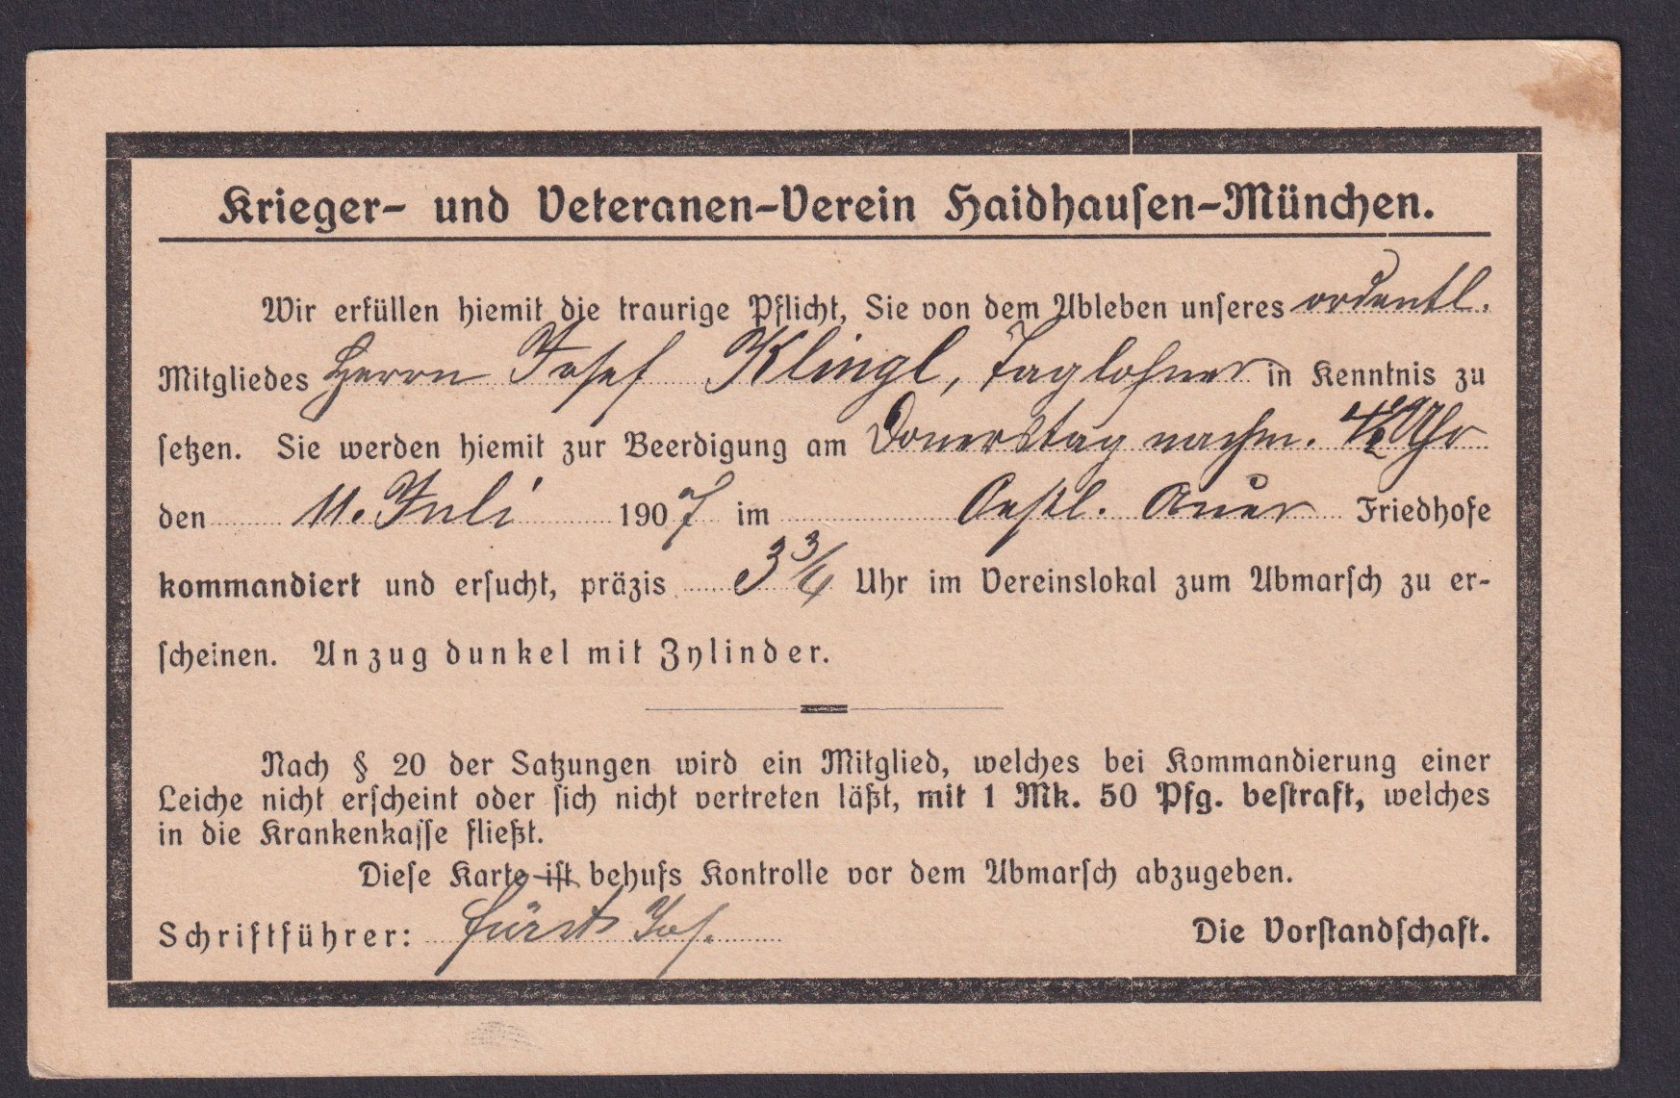 Krieger- und Veteranen-Verein Haidhausen-München.
Wir erfüllen hiemit die traurige Pflicht, Sie von dem Ableben unseres ordentl.
Mitgliedes Herrn Josef Klingl, Taglöhner in Kenntnis zu
setzen. Sie werden hiemit zur Beerdigung am Donerstag nachm. Uhr
den 11. Juli 1907 im Oestl. Auer Friedhofe
kommandiert und ersucht, präzis 3 3/4 Uhr im Vereinslokal zum Abmarsch zu er-
scheinen. Anzug dunkel mit Zylinder.
Nach § 20 der Satzungen wird ein Mitglied, welches bei Kommandierung einer
Leiche nicht erscheint oder sich nicht vertreten läßt, mit 1 Mk. 50 Pfg. bestraft, welches
in die Krankenkasse fließt.
Diese Karte ist behufs Kontrolle vor dem Abmarsch abzugeben.
Schriftführer: Fürst Jos. Die Vorstandschaft.